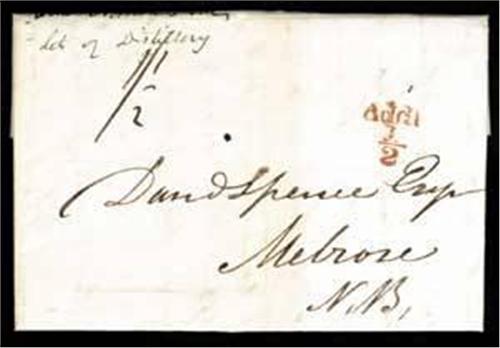 Let of Distillery
1/1
1/2
Addl
1/2
David Spence Esqr
Melrose
N.B.